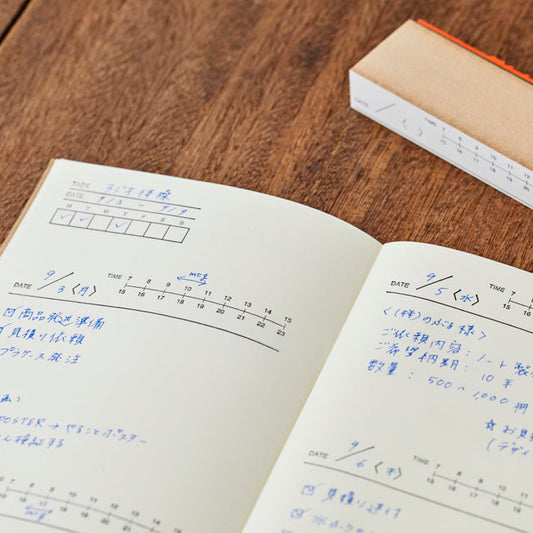 TASK ラジオ体操
DATE 9/3 - 9/9
M T W T F S S
DATE 9/3 <月>
TIME 7 8 9 10 11 12 13 14 15
15 16 17 18 19 20 21 22 23
mtg
商品発送準備
見積り依頼
プラケース発注
POSTER → やることポスター
検証する
7 8 9 10 11 12
15 16 17 18 19 20 21 22 23
DATE 9/5 <水>
TIME 7
15
<(株)のぶる様>
ご依頼内容: ノート製
ご希望納期: 10末
数量: 500~1000冊
☆お見
(デザイ
DATE 9/6 <木>
TIME 7 8 9 10 11
15 16 17 18 19
見積り送付
DATE / < > TIME 7 8 9 10 11 12
15 16 17 18 19 20